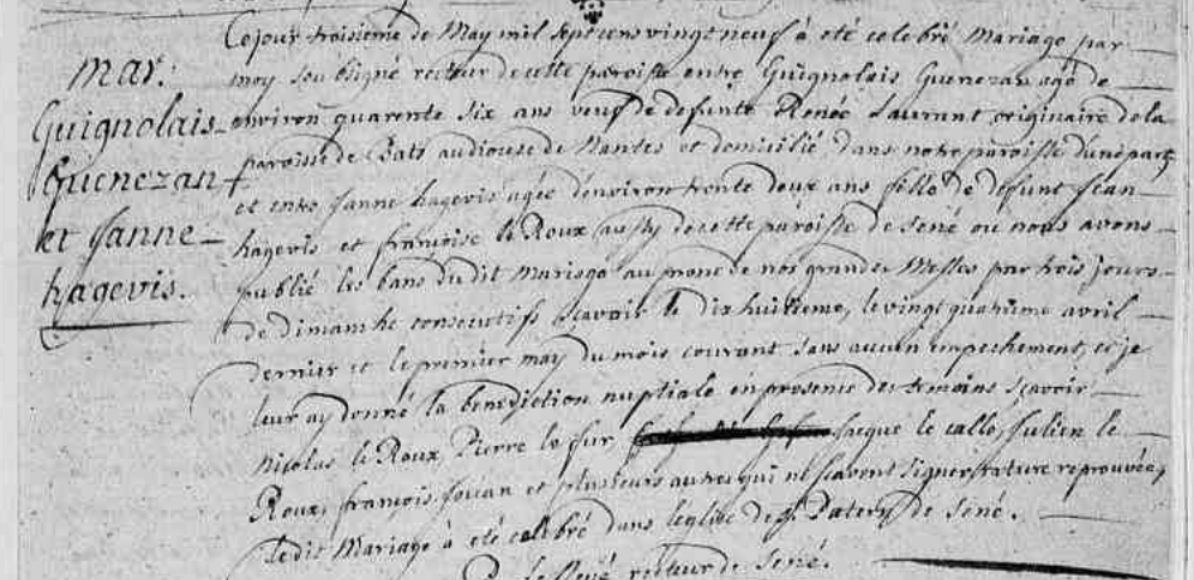 mar:
Guignolais
Guenezan
et janne
hagevis.
Cejour troisieme de May mil septcens vingt neuf à eté celebré Mariage par
moy soubsigné recteur de cette paroisse entre Guignolais Guenezan agé de
environ quarente six ans veuf de defunte Renée Laurant originaire de la
paroisse de Bats au diocese de Nantes et domicilié dans notre paroisse d'une part,
et entre janne hagevis agée denviron trente deux ans fille de defunt jean
hagevis et françoise le Roux aussy de cette paroisse de sené où nous avons
publié les bans du dit Mariage au prone de nos grandes Messes par trois jours
de dimanche consecutifs scavoir le dix huitieme, le vingt quatrieme avril
dernier et le premier may du mois courant sans aucun empeschement, et je
leur ay donné la benediction nuptiale en presence des temoins scavoir
Nicolas le Roux, Pierre le fur, jacque le callo, julien le
Roux, françois jouan et plusieurs autres qui ne scavent signer, rature reprouvée,
ledit Mariage à eté celebré dans leglise de st Patern de sené.
recteur de sené.